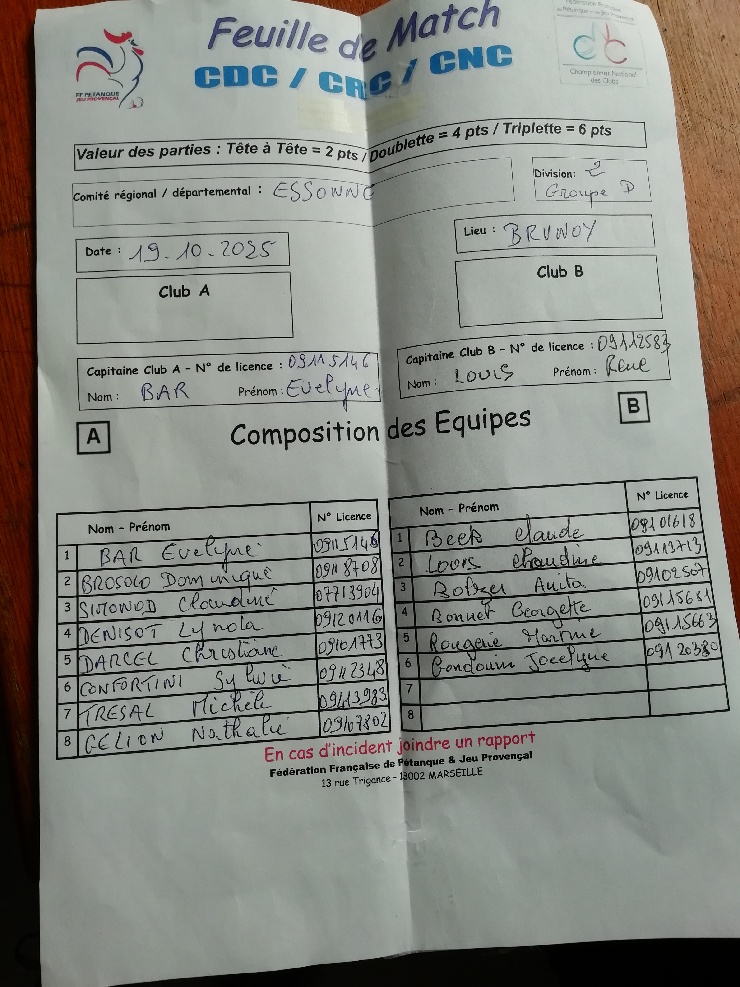 Feuille de Match
CDC / CRC / CNC
FF PETANQUE
JEU PROVENÇAL
Championnat National
des Clubs
Valeur des parties : Tête à Tête = 2 pts / Doublette = 4 pts / Triplette = 6 pts
Comité régional / départemental : ESSONNE
Division: 2
Groupe D
Date : 19-10-2025
Lieu : BRUNOY
Club A
Club B
Capitaine Club A - N° de licence : 09115146
Nom : BAR Prénom : Evelyne
Capitaine Club B - N° de licence : 09112583
Nom : LOUIS Prénom : René
A
Composition des Equipes
B
Nom - Prénom N° Licence
1 BAR Evelyne 09115146
2 BROSOLO Dominique 09118708
3 SIMONOD Claudine 07713904
4 DENISOT Lynola 09120116
5 DARCEL Christiane 09101773
6 CONFORTINI Sylvie 09112348
7 TRESAL Michèle 09413983
8 GELION Nathalie 09107802
Nom - Prénom N° Licence
1 Claude 09101618
2 Louis Claudine 09113713
3 Anita 09102507
4 Bonnet Georgette 09115681
5 Rougerie Martine 09115663
6 Jocelyne 09120380
7
8
En cas d'incident joindre un rapport
Fédération Française de Pétanque & Jeu Provençal
13 rue Trigance - 13002 MARSEILLE